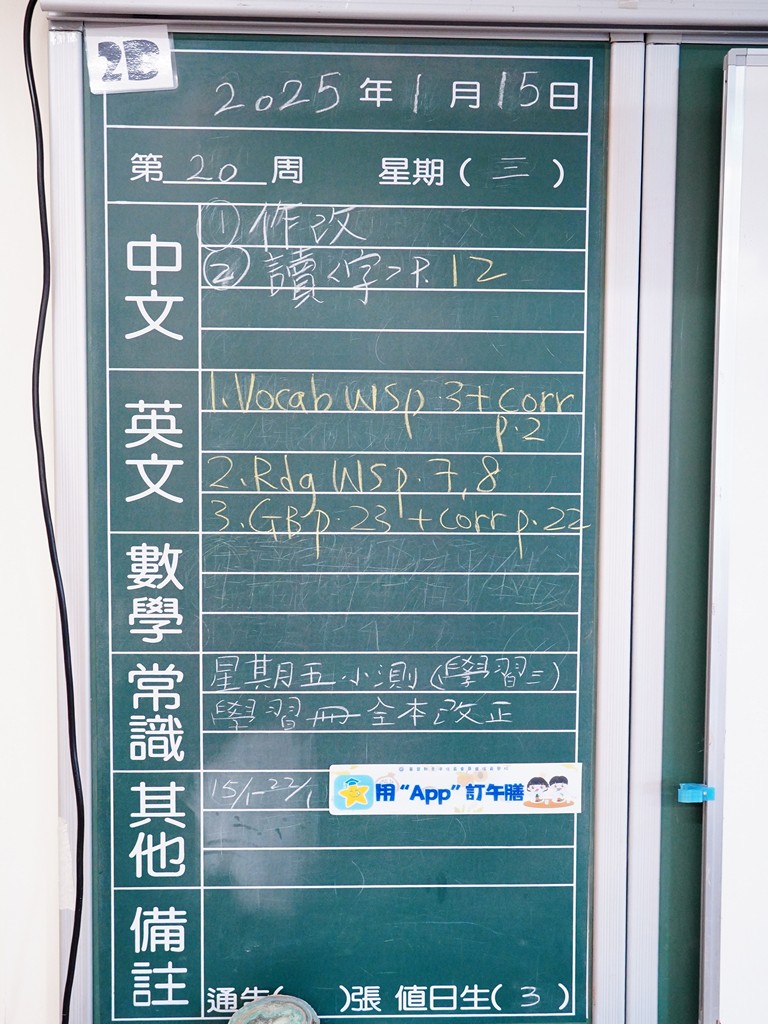 2B
2025年1月15日
第20周 星期(三)
中文
① 作改
② 讀<字>P.12
英文
1. Vocab WS p.3 + corr
p.2
2. Rdg WS p.7,8
3. GB p.23 + corr p.22
數學
常識
星期五小測(學習三)
學習冊全本改正
其他
15/1-22/1
用“App”訂午膳
備註
通告( )張 值日生(3)